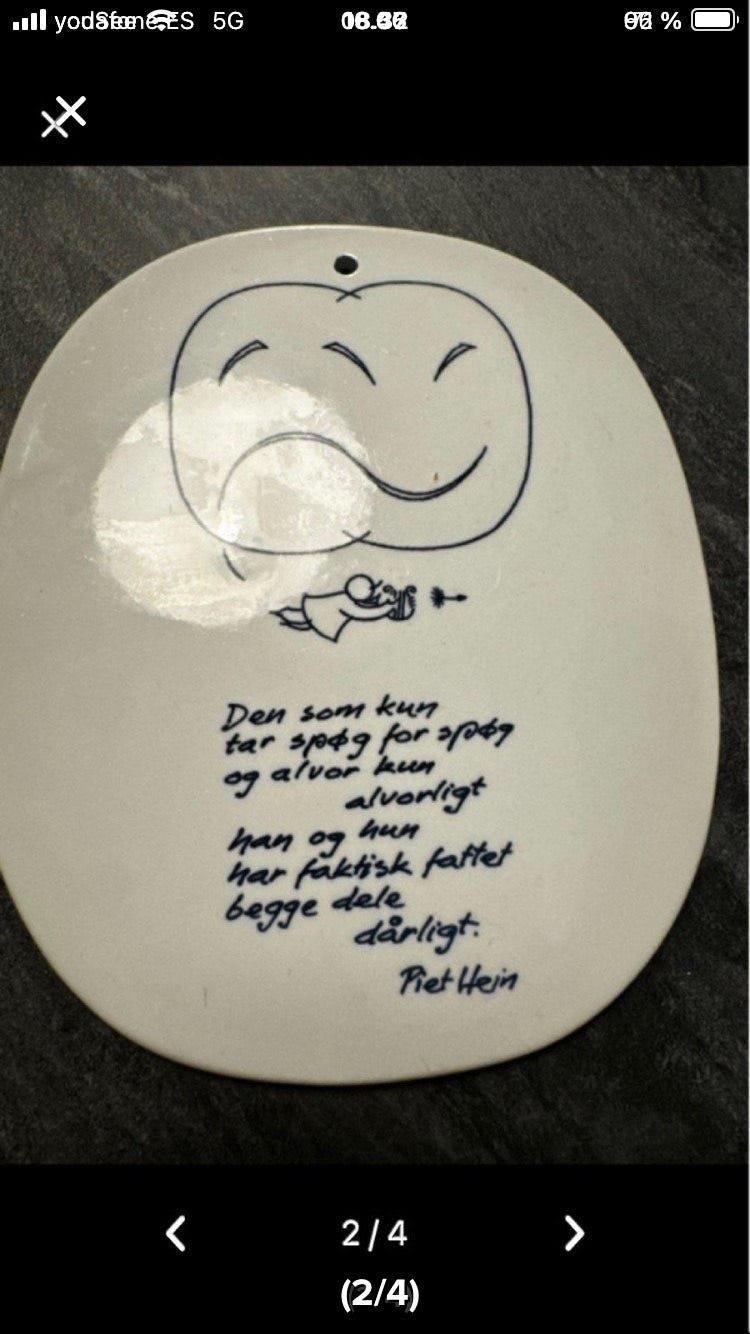 5G
2/4
(2/4)
Den som kun
tar spøg for spøg
og alvor kun
alvorligt
han og hun
har faktisk fattet
begge dele
dårligt.
Piet Hein